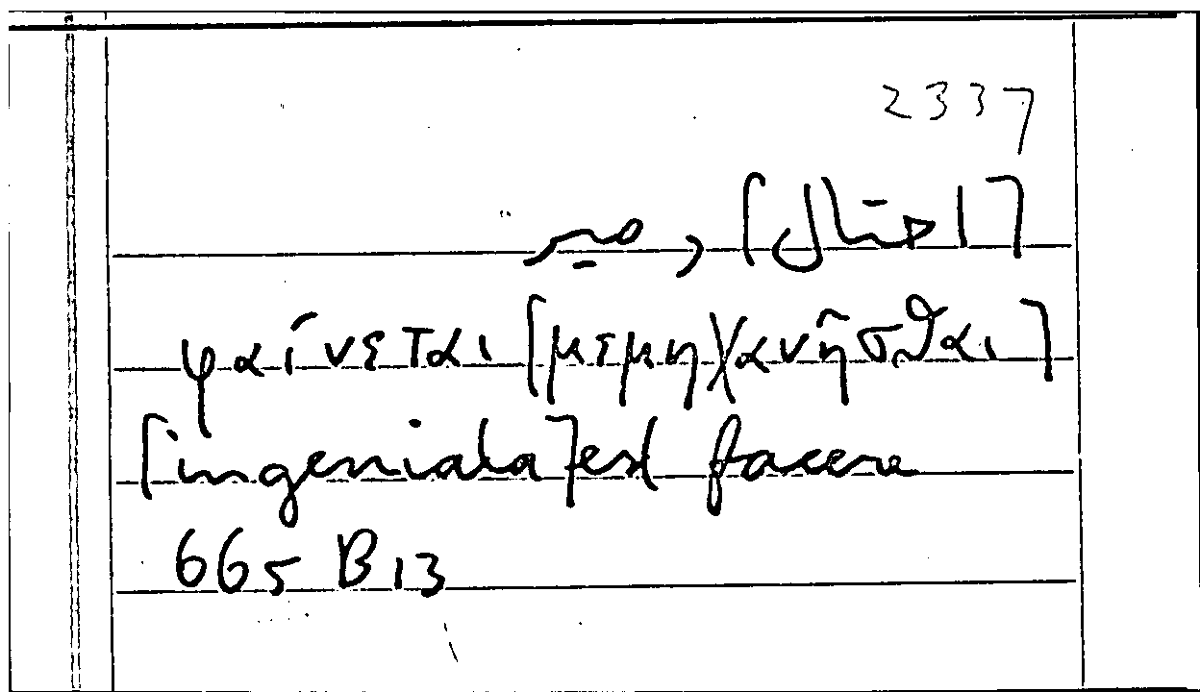 2337
[احتال] , صير
φαίνεται [μεμηχανῆσθαι]
[ingeniata] est facere
665 B 13